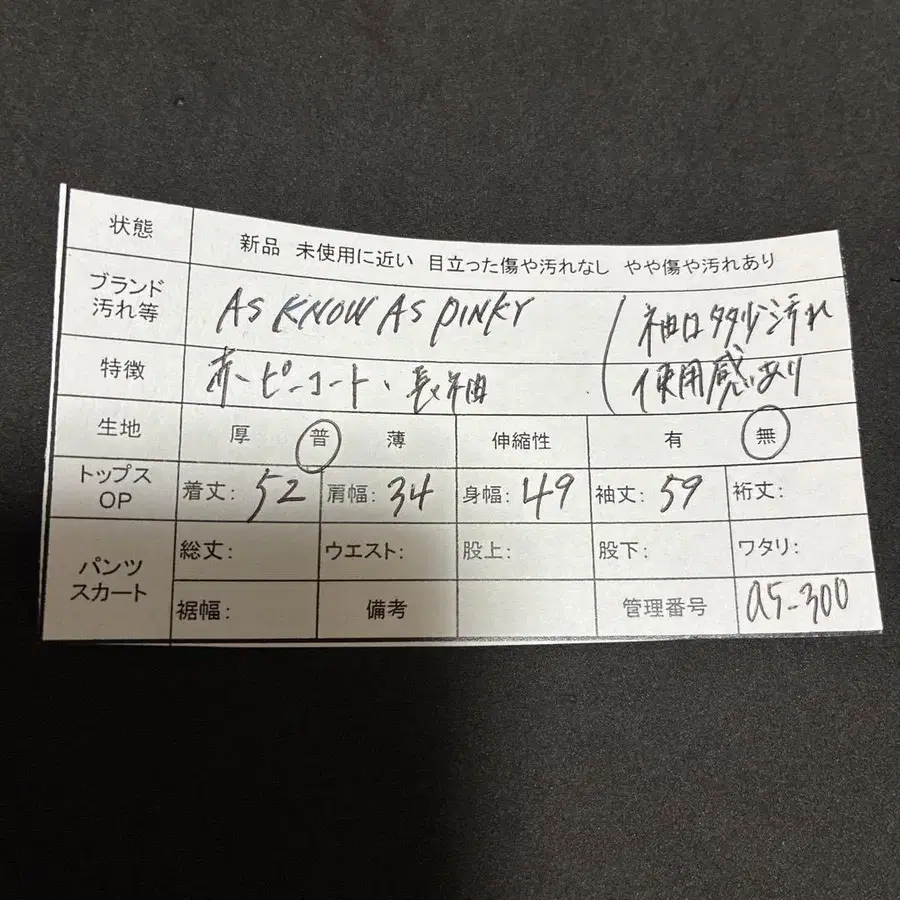 状態 新品 未使用に近い 目立った傷や汚れなし やや傷や汚れあり
ブランド 汚れ等 AS KNOW AS PINKY 袖口多少汚れ
特徴 赤、ピーコート、長袖 使用感あり
生地 厚 普 薄 伸縮性 有 無
トップス OP 着丈: 52 肩幅: 34 身幅: 49 袖丈: 59 裄丈:
パンツ スカート 総丈: ウエスト: 股上: 股下: ワタリ:
裾幅: 備考 管理番号 a5-300